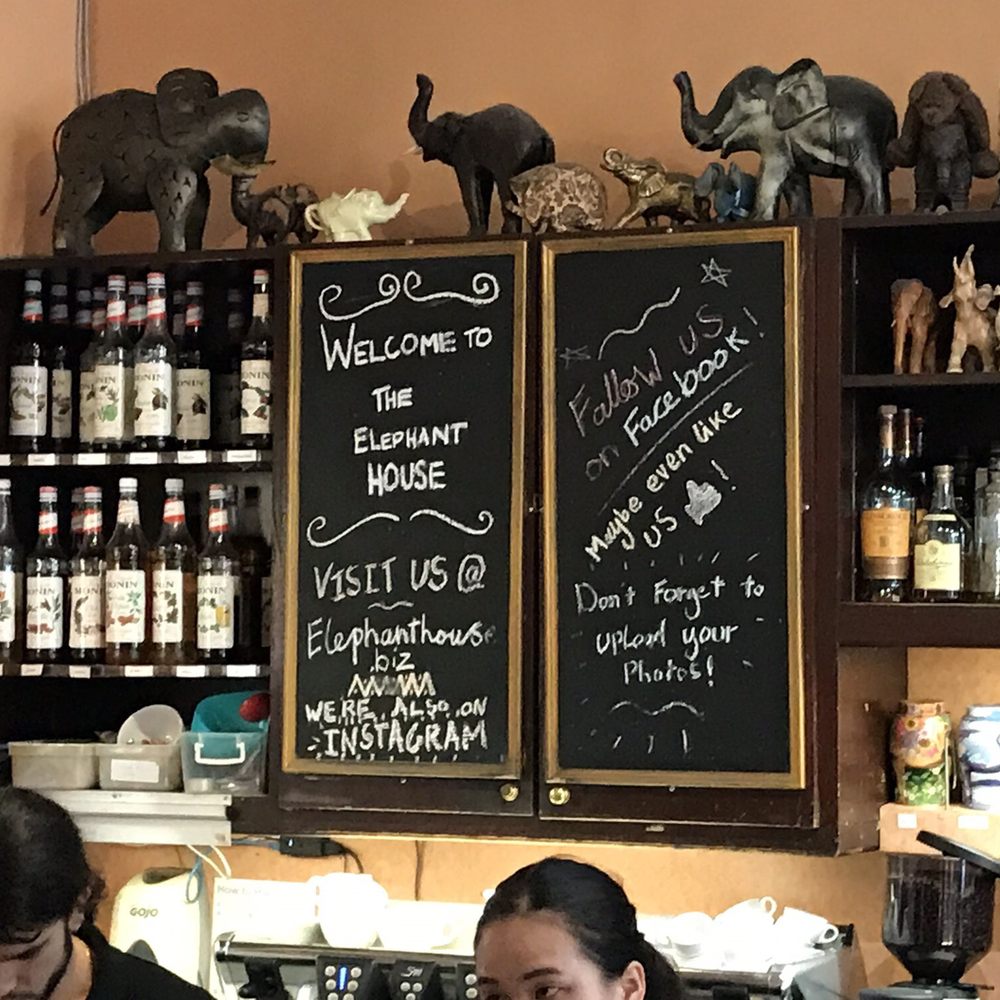 WELCOME TO
THE
ELEPHANT
HOUSE
VISIT US @
Elephanthouse
.biz
WE'RE ALSO ON
INSTAGRAM
Follow us
on Facebook!
Maybe even like
us !
Don't Forget to
upload your
Photos!
MONIN
MONIN
MONIN
MONIN
MONIN
MONIN
MONIN
MONIN
MONIN
GOJO